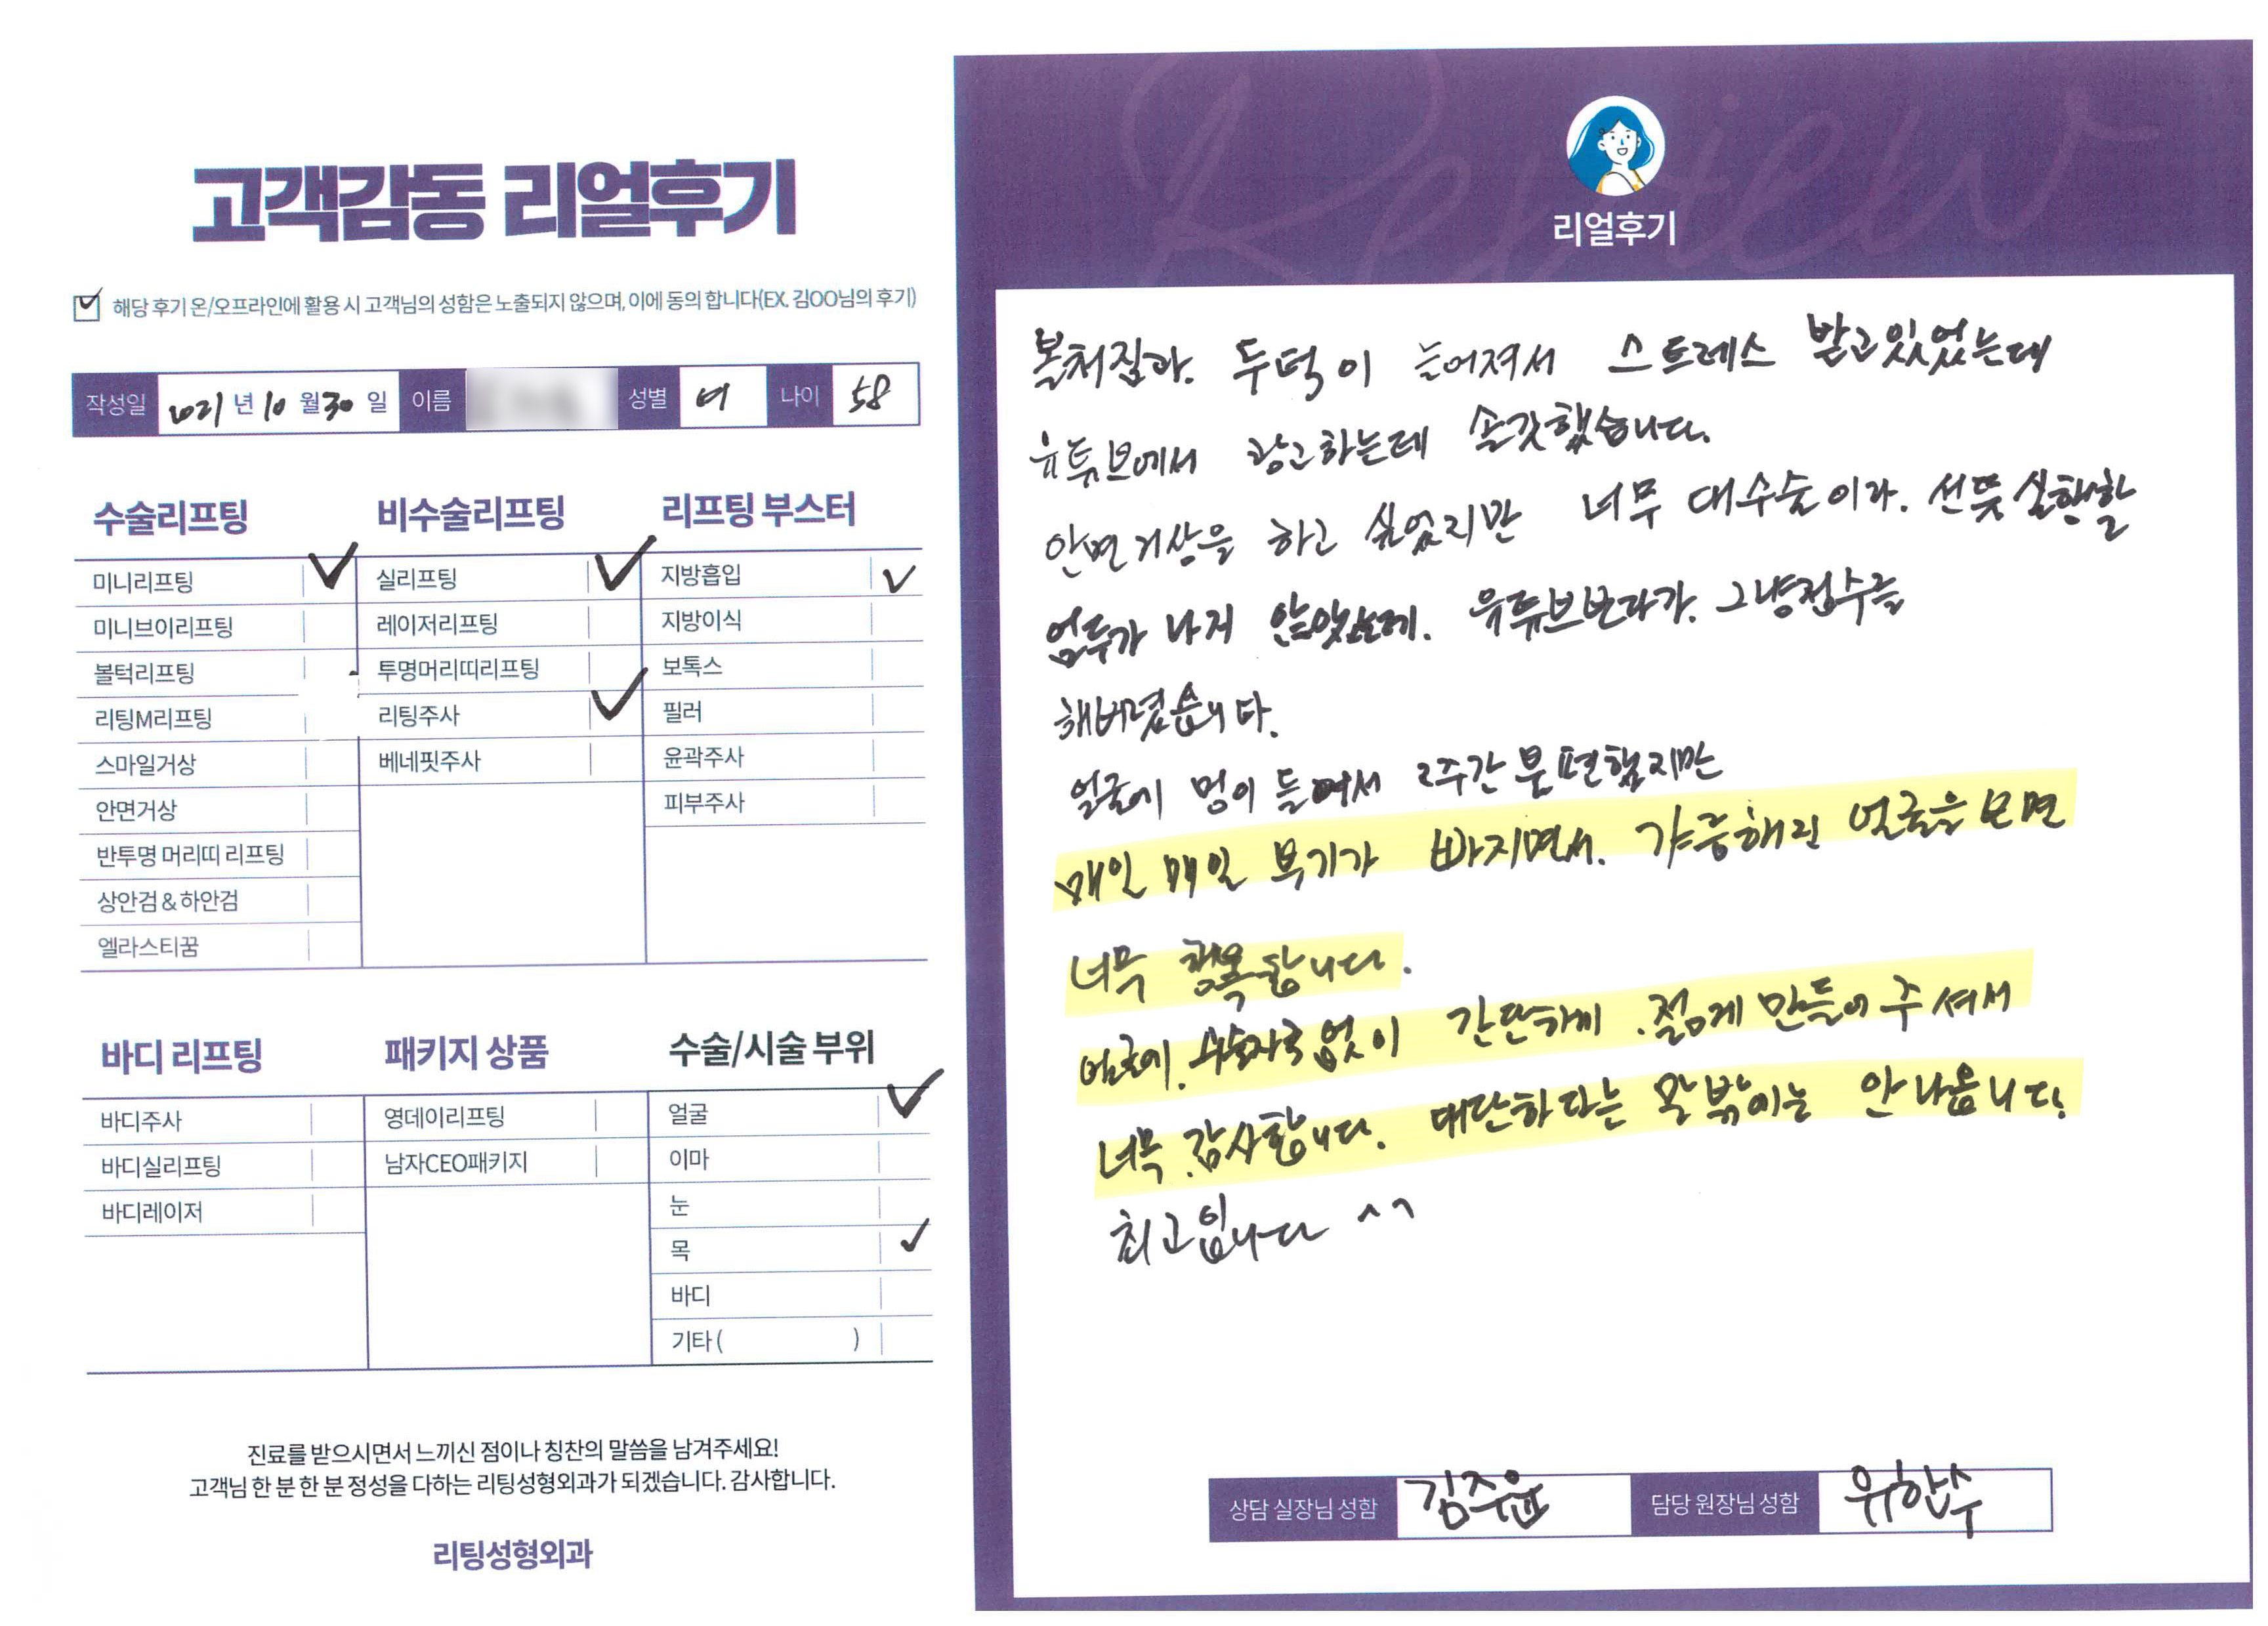 고객감동 리얼후기
해당 후기 온/오프라인에 활용 시 고객님의 성함은 노출되지 않으며, 이에 동의 합니다(EX. 김OO님의 후기)
작성일 2021 년 10 월 30 일 이름 성별 여 나이 58
수술리프팅
미니리프팅
미니브이리프팅
볼턱리프팅
리팅M리프팅
스마일거상
안면거상
반투명 머리띠 리프팅
상안검 & 하안검
엘라스티꿈
비수술리프팅
실리프팅
레이저리프팅
투명머리띠리프팅
리팅주사
베네핏주사
리프팅 부스터
지방흡입
지방이식
보톡스
필러
윤곽주사
피부주사
바디 리프팅
바디주사
바디실리프팅
바디레이저
패키지 상품
영데이리프팅
남자CEO패키지
수술/시술 부위
얼굴
이마
눈
목
바디
기타 ( )
진료를 받으시면서 느끼신 점이나 칭찬의 말씀을 남겨주세요!
고객님 한 분 한 분 정성을 다하는 리팅성형외과가 되겠습니다. 감사합니다.
리팅성형외과
Review
리얼후기
볼처짐과. 두턱이 늘어져서 스트레스 받고있었는데
유튜브에서 광고하는데 솔깃했습니다.
안면거상을 하고 싶었지만 너무 대수술이라. 선뜻 실행할
엄두가 나지 않았는데. 유튜브보다가. 그냥접수를
해버렸습니다.
얼굴에 멍이 들어서 2주간 불편했지만
매일 매일 부기가 빠지면서. 갸름해진 얼굴을 보면
너무 행복합니다.
얼굴에. 수술자국 없이 간단하게 .젊게 만들어 주셔서
너무 감사합니다. 대단하다는 말 밖에는 안 나옵니다.
최고입니다 ^^
상담 실장님 성함 김주윤 담당 원장님 성함 유한수